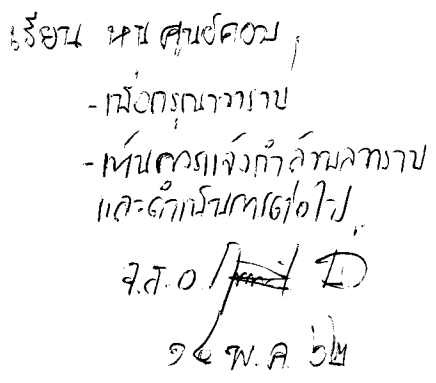 เรียน หน ศูนย์คอม
- เพื่อกรุณาทราบ
- เห็นควรแจ้งกำลังพลทราบ
และดำเนินการต่อไป
จ.ส.อ.
๑๔ พ.ค. ๖๒